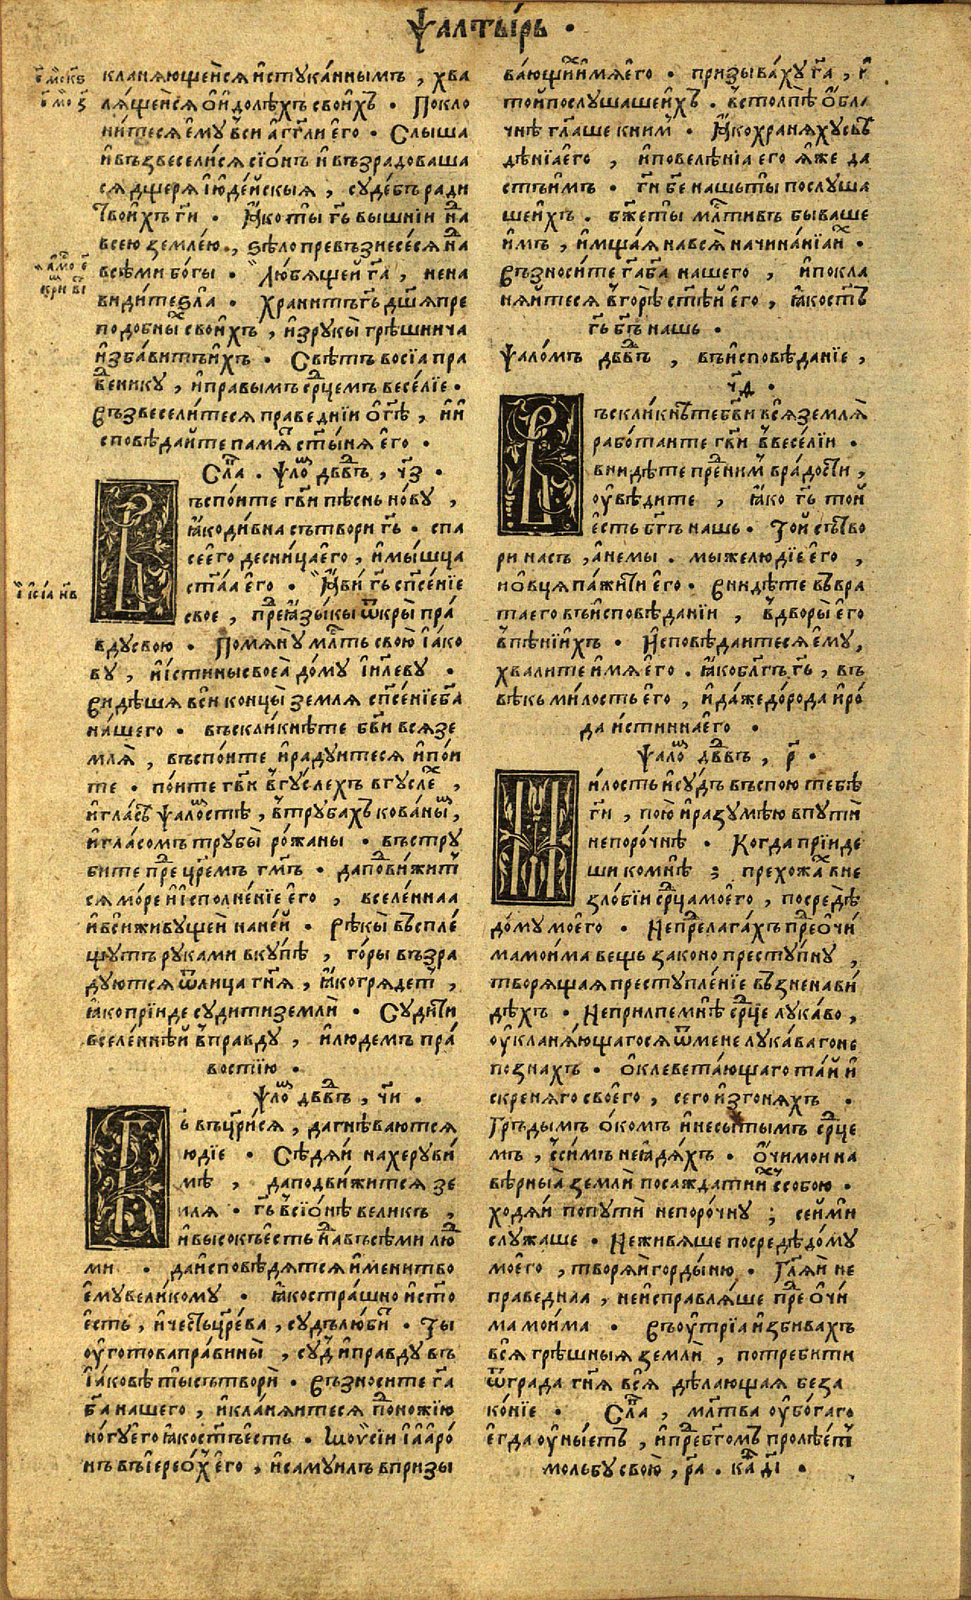 Ѱалты́рь .
кланѧющейсѧ и҆стука́ннымъ , хва
лѧ́щейсѧ ѻ҆ и҆́долѣхъ свои́хъ . Покло
ни́тесѧ є҆му̀ вси̏ а҆́гг҃ли є҆го̀ . Слыша
и҆ възвесели́сѧ сїѡ́нъ и҆ възрадоваша
сѧ дще́рѧ і҆юде́йскыѧ , суде́бъ ради
твои́хъ гд҃и . Ꙗ҆́ко ты̀ гд҃ь вышнїи на̀д
всею̀ земле́ю , ѕѣло̀ превъзнесе́сѧ над
всѣ́ми бо́гы . Лю́бѧщей гд҃а , нена
ви́дите ѕла̀ . Храни́тъ гд҃ь дш҃ѧ пре
подо́бных свои́хъ , и҆ з рукы̀ грѣ́шнича
и҆зба́витъ и҆̀хъ . Свѣ́тъ восїа̀ пра
ве́днику , и҆ правымъ ср҃цемъ весе́лїе .
Възвесели́тесѧ праве́днїи ѻ҆ гд҃ѣ , и҆ и҆
сповѣ́дайте па́мѧт ст҃ы́нѧ є҆го̀ .
Сла́в . Ѱало́м дв҃двъ , ч҃з .
Въспо́ите гд҃ви пѣ́снь но́ву ,
ꙗ҆́ко ди́вна сътвори̏ гд҃ь . спа
се є҆го̀ десни́ца є҆го̀ , и҆ мы́шца
ст҃аа є҆го̀ . Ꙗ҆ви̏ гд҃ь сп҃се́нїе
свое , пред ꙗ҆зы́кы ѿкры̀ пра́
вду свою . Помѧну̀ мл҃ть свою̀ і҆а́ко
ву , и҆ и҆́стину своеѧ̀ до́му і҆и҃леву .
Видѣшѧ вси̏ концы̀ землѧ сп҃се́нїе бг҃а
на́шего . въскли́кнѣте бг҃ви всѧ зе
млѧ̀ , въспо́ите и҆ ра́дуитесѧ и҆ по́и
те . по́ите гд҃ви в гу́слехъ в гу́слех ,
и҆ гла́сом ѱалѡ́мстѣ , в тру́бахъ ко́ваных ,
и҆ гла́сомъ трубы̀ ро́жаны . въстру
бите пред цр҃емъ гд҃мъ . да подви́житъ
сѧ мо́ре и҆ и҆сполне́нїе є҆го̀ , вселе́ннаа
и҆ вси̏ живущей на не́й . Рѣкы̀ въспле́
щутъ рука́ми вку́пѣ , го́ры възра
дуютсѧ ѿ лица гд҃нѧ , ꙗ҆́ко грѧде́тъ ,
ꙗ҆́ко прїи́де суди́ти земли̏ . Суди́ти
вселе́ннѣй в пра́вду , и҆ лю́демъ пра́
востїю .
Ѱало́м дв҃двъ , ч҃и .
Гд҃ь въцр҃и́сѧ , да гнѣ́ваютсѧ
лю́дїе . Сѣдѧ́й на херуви́
мѣ , да подви́житсѧ зе
млѧ . гд҃ь в сїѡ́нѣ вели́къ ,
и҆ высокъ є҆сть над всѣми лю́д
ми . да и҆сповѣ́дѧтсѧ и҆́мени тво
є҆му̀ вели́кому . ꙗ҆́ко стра́шно и҆ ст҃о
є҆́сть , и҆ че́сть цр҃е́ва , су́дъ лю́битъ . Ты
оу҆гото́ва пра́вины̀ , су́д и҆ пра́вду въ
і҆а́ковѣ ты̀ сътвори̏ . Възноси́те гд҃а
бг҃а нашего , и҆ кланѧитесѧ подно́жїю
но́гу є҆го̀ ꙗ҆́ко ст҃ъ є҆́сть . Моѵси́и і҆ а҆аро́
нъ въ і҆ере́ох є҆го̀ , и҆ саму́илъ в призы
ва́ющих и҆́мѧ є҆го̀ . призыва́ху гд҃а , и҆
то́й послу́шаше и҆́хъ . в столпѣ̀ ѻ҆́бла
чнѣ гл҃аше к ни́м . Ꙗ҆́ко хранѧ́ху съвѣ
дѣ́нїа є҆го̀ , и҆ повелѣ́нїа є҆го ꙗ҆̀же да
сть и҆̀мъ . гд҃и бж҃е на́шь ты̀ послу́ша
ше и҆̀хъ . бж҃е ты̀ мл҃тивъ быва́ше
и҆̀мъ , и҆ мща́ѧ на всѧ̀ начина́нїа и҆̀х .
Възноси́те гд҃а бг҃а нашего , и҆ покла
нѧ́йтесѧ в горѣ̀ ст҃ѣ́й є҆го , ꙗ҆́ко ст҃ъ
гд҃ь бг҃ъ нашь .
Ѱало́мъ дв҃двъ , въ и҆сповѣ́данїе ,
ч҃ѳ .
Въскли́кнѣте бг҃ви всѧ̀ землѧ̀
рабо́таите гд҃ви в весе́лїи .
вни́дѣте пред ни́м в ра́дости ,
оу҆вѣ́дите , ꙗ҆́ко гд҃ь то́й
є҆́сть бг҃ъ нашь . То́й сътво
ри на́съ , а҆ не мы . мы́ же лю́дїе є҆го̀ ,
и҆ ѻ҆́вцѧ па́жити є҆го . Вни́дѣте въ вра
та є҆го въ и҆сповѣ́данїи , в дворы̀ є҆го
в пѣ́нїихъ . И҆сповѣ́даитесѧ є҆му̀ ,
хвали́те и҆́мѧ є҆го . ꙗ҆́ко бл҃гъ гд҃ь , въ
вѣкь ми́лость є҆го̀ , и҆ да́же до ро́да и҆ ро́
да и҆́стинна є҆го .
Ѱало́м дв҃двъ , р҃ .
Ми́лость и҆ су́дъ въспою тебѣ̀
гд҃и , пою̀ и҆ разумѣ́ю в пути̏
непоро́чнѣ . Когда прїи́де
ши ко мнѣ̀ ; прехожа́х в не
зло́бїи ср҃ца моего̀ , посредѣ̀
до́му мо́его . Не предлага́хъ пред ѻ҆чи́
ма мои́ма вещь законопресту́пну ,
творѧ́щаѧ преступле́нїе възненави́
дѣхъ . Не прильпе мнѣ̀ ср҃це лука́во ,
оу҆кланѧ́ющагосѧ ѿ мене лука́ваго не
позна́хъ . ѻ҆клевета́ющаго та́й и҆
скренѧго своего̀ , сего и҆згонѧ́хъ .
Гръ́дымъ ѻ҆́комъ и҆ несы́тымъ ср҃це
мъ , с си́мъ не ꙗ҆дѧ́хъ . Ѻ҆́чи мои на
вѣ́рныѧ̀ земли̏ посажда́ти и҆̀х с собою .
ходѧ́и по пути̏ непоро́чну ; се́й ми́
слу́жаше . Не живѧ́ше посредѣ̀ до́му
моего , творѧ́и горды́ню . Гл҃ѧй не
праведнаа , не и҆справлѧ́ше пред ѻ҆чи́
ма мои́ма . Въ оу҆́трїа и҆збива́хъ
всѧ̀ грѣ́шныѧ земли̏ , потреби́ти
ѿ града гд҃нѧ всѧ̀ дѣ́лающаѧ беза
ко́нїе . Сла́в , мл҃тва оу҆бо́гаго
є҆гда оу҆ны́етъ , и҆ пред бг҃омъ пролѣ́етъ
мольбу свою , р҃а . ка́ѳ д҃і .